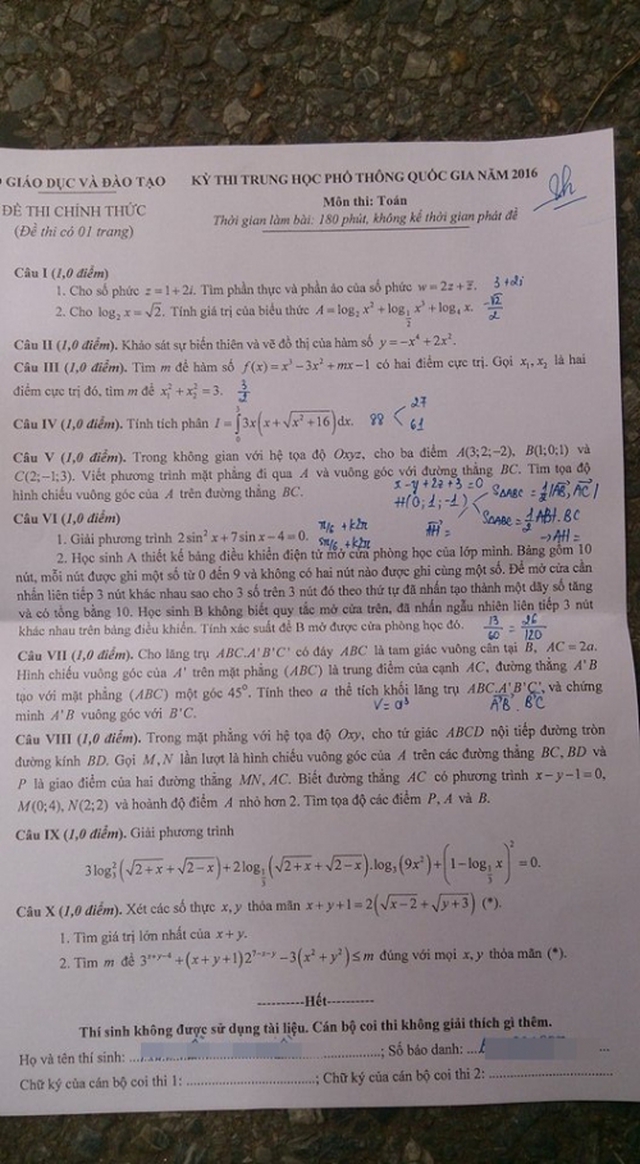 GIÁO DỤC VÀ ĐÀO TẠO
KỲ THI TRUNG HỌC PHỔ THÔNG QUỐC GIA NĂM 2016
ĐỀ THI CHÍNH THỨC
Môn thi: Toán
(Đề thi có 01 trang)
Thời gian làm bài: 180 phút, không kể thời gian phát đề
Câu I (1,0 điểm)
1. Cho số phức z = 1 + 2i. Tìm phần thực và phần ảo của số phức w = 2z + z̄. 3+2i
2. Cho log₂ x = √2. Tính giá trị của biểu thức A = log₂ x² + log_{1/2} x³ + log₄ x. -√2/2
Câu II (1,0 điểm). Khảo sát sự biến thiên và vẽ đồ thị của hàm số y = −x⁴ + 2x².
Câu III (1,0 điểm). Tìm m để hàm số f(x) = x³ − 3x² + mx − 1 có hai điểm cực trị. Gọi x₁, x₂ là hai
điểm cực trị đó, tìm m để x₁² + x₂² = 3. 3/2
Câu IV (1,0 điểm). Tính tích phân I = ∫₀³ 3x(x + √(x² + 16))dx. 88 < 27 61
Câu V (1,0 điểm). Trong không gian với hệ tọa độ Oxyz, cho ba điểm A(3;2;−2), B(1;0;1) và
C(2;−1;3). Viết phương trình mặt phẳng đi qua A và vuông góc với đường thẳng BC. Tìm tọa độ
hình chiếu vuông góc của A trên đường thẳng BC.
x - y + 2z + 3 = 0
H(0;1;-1)
S∆ABC = 1/2 |AB, AC|
S∆ABC = 1/2 AH . BC
→ AH =
AH =
Câu VI (1,0 điểm)
1. Giải phương trình 2sin² x + 7sin x − 4 = 0. π/6 + k2π 5π/6 + k2π
2. Học sinh A thiết kế bảng điều khiển điện tử mở cửa phòng học của lớp mình. Bảng gồm 10
nút, mỗi nút được ghi một số từ 0 đến 9 và không có hai nút nào được ghi cùng một số. Để mở cửa cần
nhấn liên tiếp 3 nút khác nhau sao cho 3 số trên 3 nút đó theo thứ tự đã nhấn tạo thành một dãy số tăng
và có tổng bằng 10. Học sinh B không biết quy tắc mở cửa trên, đã nhấn ngẫu nhiên liên tiếp 3 nút
khác nhau trên bảng điều khiển. Tính xác suất để B mở được cửa phòng học đó. 13/60 = 26/120
Câu VII (1,0 điểm). Cho lăng trụ ABC.A'B'C' có đáy ABC là tam giác vuông cân tại B, AC = 2a.
Hình chiếu vuông góc của A' trên mặt phẳng (ABC) là trung điểm của cạnh AC, đường thẳng A'B
tạo với mặt phẳng (ABC) một góc 45°. Tính theo a thể tích khối lăng trụ ABC.A'B'C', và chứng
minh A'B vuông góc với B'C. V = a³ A'B . B'C
Câu VIII (1,0 điểm). Trong mặt phẳng với hệ tọa độ Oxy, cho tứ giác ABCD nội tiếp đường tròn
đường kính BD. Gọi M, N lần lượt là hình chiếu vuông góc của A trên các đường thẳng BC, BD và
P là giao điểm của hai đường thẳng MN, AC. Biết đường thẳng AC có phương trình x − y − 1 = 0,
M(0;4), N(2;2) và hoành độ điểm A nhỏ hơn 2. Tìm tọa độ các điểm P, A và B.
Câu IX (1,0 điểm). Giải phương trình
3log₃²(√(2+x) + √(2−x)) + 2log_{1/3}(√(2+x) + √(2−x)).log₃(9x²) + (1 − log_{1/3} x)² = 0.
Câu X (1,0 điểm). Xét các số thực x, y thỏa mãn x + y + 1 = 2(√(x−2) + √(y+3)) (*).
1. Tìm giá trị lớn nhất của x + y.
2. Tìm m để 3^{x+y−4} + (x + y + 1)2^{7−x−y} − 3(x² + y²) ≤ m đúng với mọi x, y thỏa mãn (*).
----------Hết----------
Thí sinh không được sử dụng tài liệu. Cán bộ coi thi không giải thích gì thêm.
Họ và tên thí sinh: ...; Số báo danh: ...
Chữ ký của cán bộ coi thi 1: ...; Chữ ký của cán bộ coi thi 2: ...